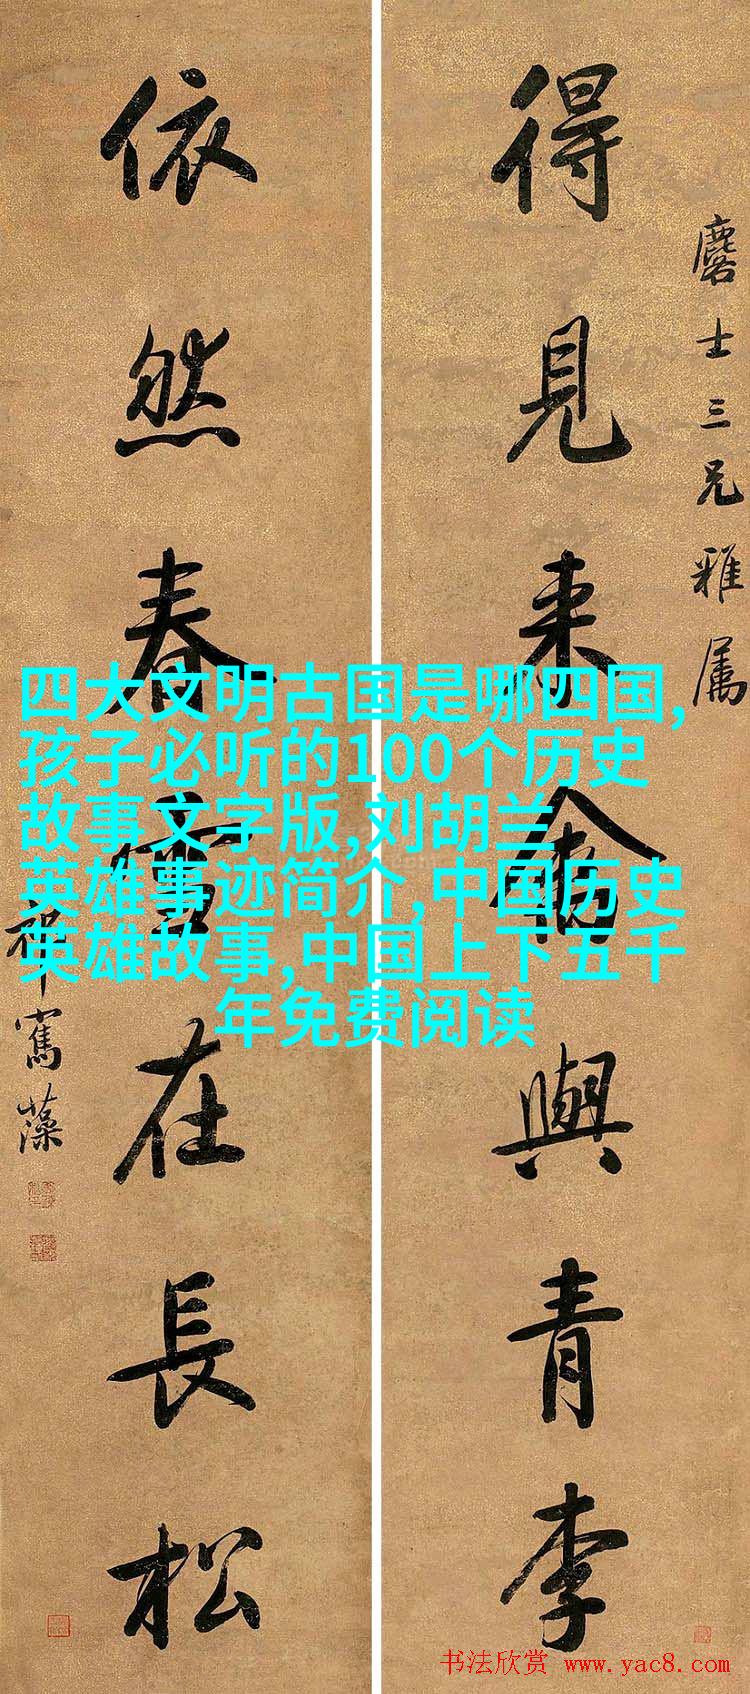 得見来禽與青李
麐士三兄雅属
依然春雪在長松
祁寯藻
四大文明古国是哪四国,
孩子必听的100个历史
故事文字版,刘胡兰
英雄事迹简介,中国历史
英雄故事,中国上下五千
年免费阅读
书法欣赏 www.yac8.com